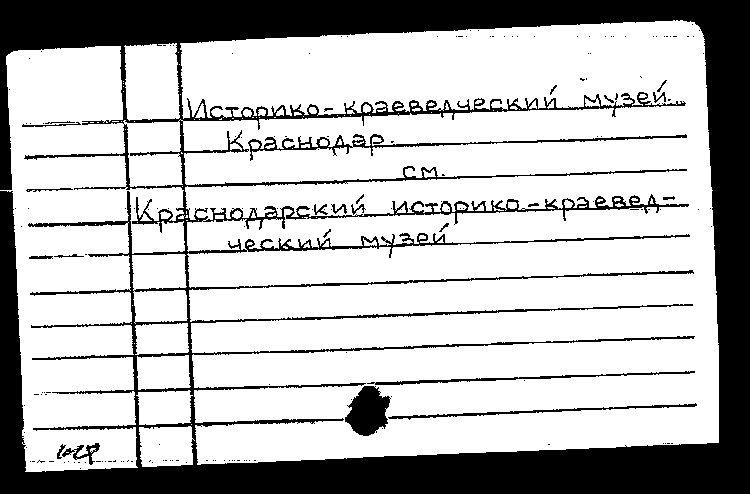 Историко-краеведческий музей.
Краснодар.
см.
Краснодарский историко-краевед-
ческий музей